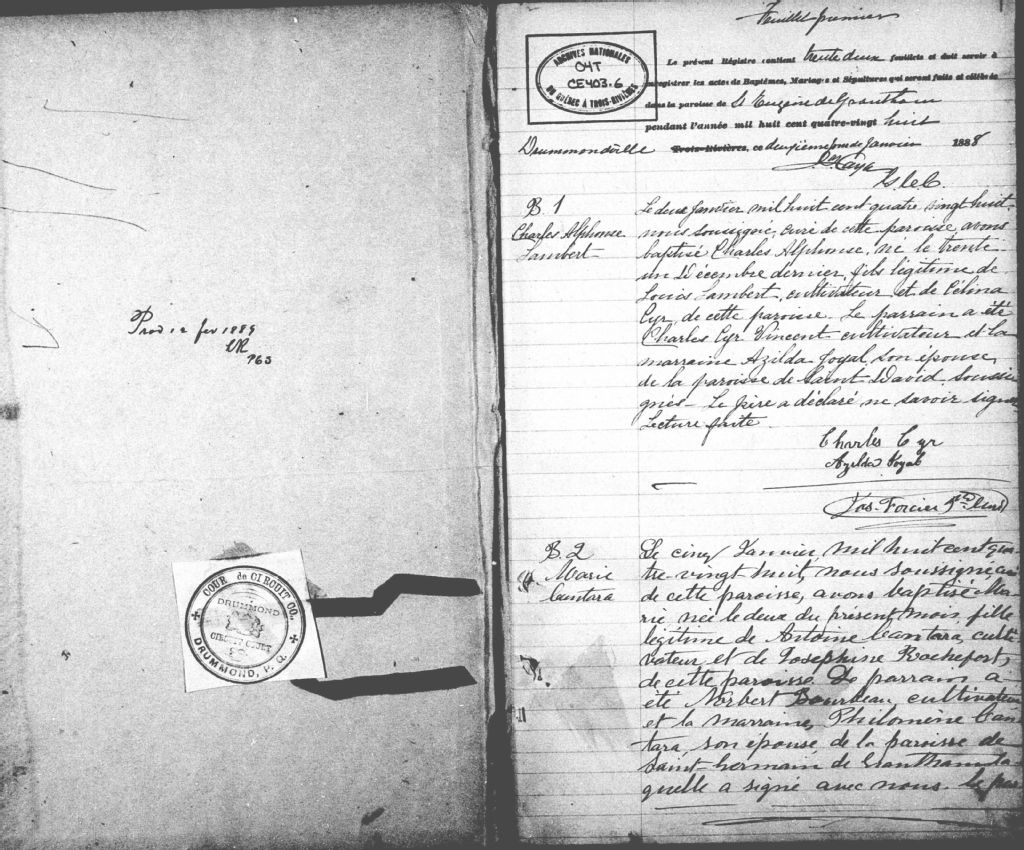 Prod 12 fev 1889
763
COUR de CIRCUIT CO.
DRUMMOND
CIRCUIT COURT
DRUMMOND, P. Q.
Feuillet premier
ARCHIVES NATIONALES
04T
CE403.6
DU QUÉBEC À TROIS-RIVIÈRES
Le présent Régistre contient trente deux feuillets et doit servir à
enregistrer les actes de Baptêmes, Mariages et Sépultures qui seront faits et célébrés
dans la paroisse de St Eugène de Grantham
pendant l'année mil huit cent quatre-vingt huit
Drummondville Trois-Rivières, ce deuxième jour de Janvier 1888
B. 1
Charles Alphonse
Lambert
Le deux Janvier mil huit cent quatre vingt huit
nous soussigné, curé de cette paroisse avons
baptisé Charles Alphonse, né le trente
un Décembre dernier, fils légitime de
Louis Lambert, cultivateur et de Célina
Cyr, de cette paroisse. Le parrain a été
Charles Cyr Vincent cultivateur et la
marraine Azilda Joyal, son épouse,
de la paroisse de Saint David Soussi
gnés - Le père a déclaré ne savoir signer
Lecture faite.
Charles Cyr
Azilda Joyal
Jos. Forcier Ptre Curé
B. 2
Marie
Cantara
Le cinq Janvier, mil huit cent qua
tre-vingt huit, nous soussigné, cu
de cette paroisse, avons baptisé Ma-
rie née le deux du présent mois, fille
légitime de Antoine Cantara, culti
vateur et de Joséphine Rochefort,
de cette paroisse Le parrain a
été Norbert Bourbeau cultivateur
et la marraine, Philomène Can
tara, son épouse de la paroisse de
Saint-Germain de Grantham la-
quelle a signé avec nous. Le père